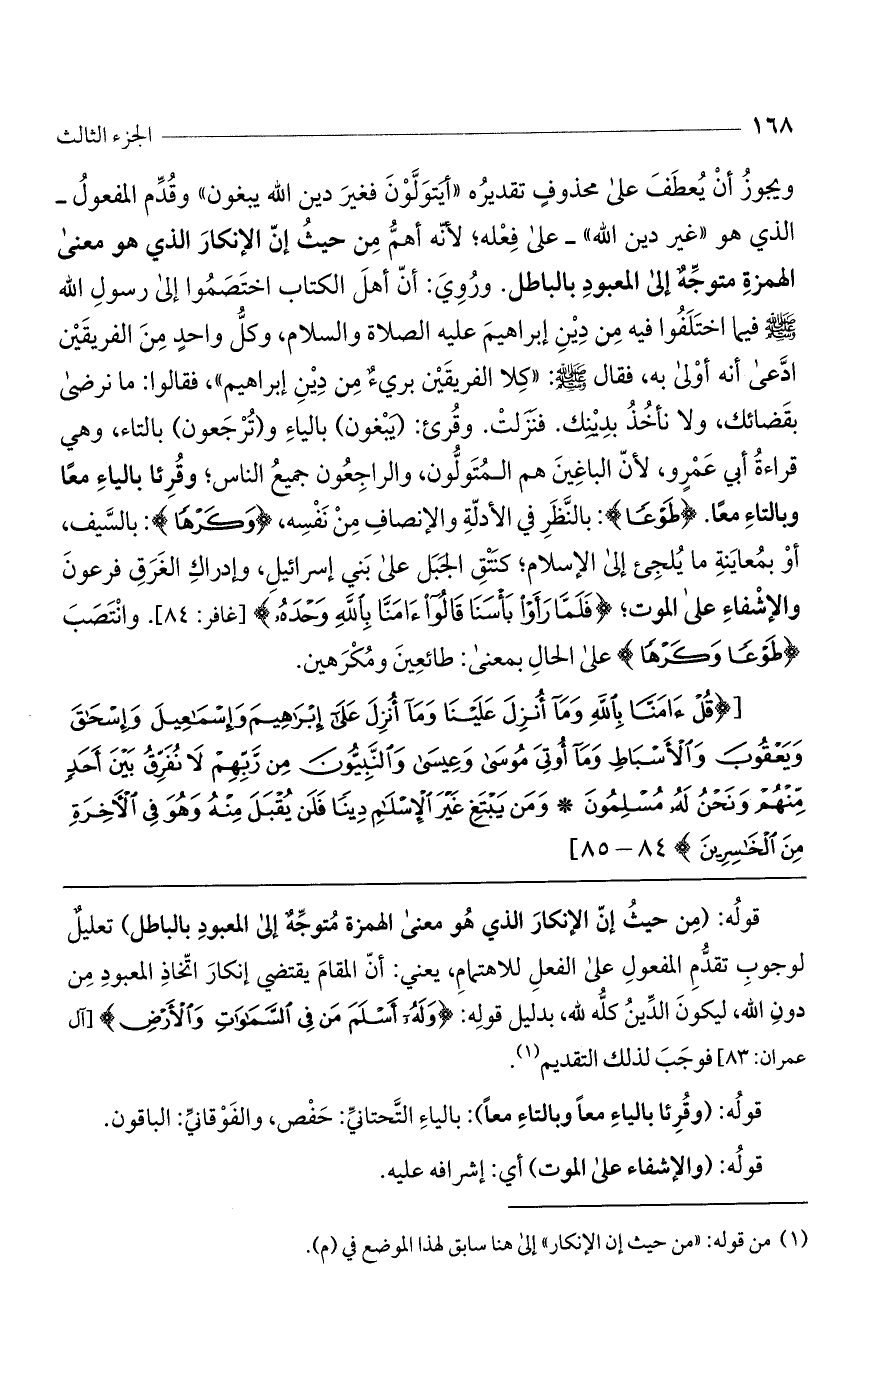 ١٦٨ ــــــــــــــــــــ الجزء الثالث
ويجوزُ أنْ يُعطَفَ علىٰ محذوفٍ تقديرُه «أيَتولَّوْنَ فغيرَ دين الله يبغون» وقُدِّم المفعولُ ـ
الذي هو «غير دين الله» ـ علىٰ فِعْله؛ لأنّه أهمُّ مِن حيثُ إنّ الإنكارَ الذي هو معنىٰ
الهمزةِ متوجِّهٌ إلىٰ المعبودِ بالباطل. ورُوِيَ: أنّ أهلَ الكتاب اختَصَمُوا إلىٰ رسولِ الله
ﷺ فيما اختَلَفُوا فيه مِن دِيْنِ إبراهيمَ عليه الصلاة والسلام، وكلُّ واحدٍ مِنَ الفريقَيْن
ادَّعىٰ أنه أوْلىٰ به، فقال ﷺ: «كِلا الفريقَيْن بريءٌ مِن دِيْنِ إبراهيم»، فقالوا: ما نرضىٰ
بقَضائك، ولا نأخُذُ بدِيْنِك. فنَزَلتْ. وقُرئ: (يَبْغون) بالياءِ و(تُرْجَعون) بالتاء، وهي
قراءةُ أبي عَمْرٍو، لأنّ الباغِينَ هم الـمُتَولُّون، والراجِعُون جميعُ الناس؛ وقُرِئا بالياءِ معًا
وبالتاءِ معًا. ﴿طَوْعًا﴾: بالنَّظَرِ في الأدلّةِ والإنصافِ مِنْ نَفْسِه، ﴿وَكَرْهًا﴾: بالسَّيف،
أوْ بمُعايَنةِ ما يُلجِئ إلىٰ الإسلام؛ كنَتْقِ الجَبَل علىٰ بَني إسرائيل، وإدراكِ الغَرَقِ فرعونَ
والإشْفاءِ علىٰ الموت؛ ﴿فَلَمَّا رَأَوْا۟ بَأْسَنَا قَالُوٓا۟ ءَامَنَّا بِٱللَّهِ وَحْدَهُۥ﴾ [غافر: ٨٤]. وانْتَصَبَ
﴿طَوْعًا وَكَرْهًا﴾ علىٰ الحالِ بمعنىٰ: طائعِينَ ومُكْرَهين.
[﴿قُلْ ءَامَنَّا بِٱللَّهِ وَمَآ أُنزِلَ عَلَيْنَا وَمَآ أُنزِلَ عَلَىٰٓ إِبْرَٰهِيمَ وَإِسْمَـٰعِيلَ وَإِسْحَـٰقَ
وَيَعْقُوبَ وَٱلْأَسْبَاطِ وَمَآ أُوتِىَ مُوسَىٰ وَعِيسَىٰ وَٱلنَّبِيُّونَ مِن رَّبِّهِمْ لَا نُفَرِّقُ بَيْنَ أَحَدٍ
مِّنْهُمْ وَنَحْنُ لَهُۥ مُسْلِمُونَ * وَمَن يَبْتَغِ غَيْرَ ٱلْإِسْلَـٰمِ دِينًا فَلَن يُقْبَلَ مِنْهُ وَهُوَ فِى ٱلْـَٔاخِرَةِ
مِنَ ٱلْخَـٰسِرِينَ﴾ ٨٤ – ٨٥]
قولُه: (مِن حيثُ إنّ الإنكارَ الذي هُو معنىٰ الهمزة مُتوجِّهٌ إلىٰ المعبودِ بالباطل) تعليلٌ
لوجوبِ تقدُّمِ المفعولِ علىٰ الفعلِ للاهتمامِ، يعني: أنّ المقامَ يقتضي إنكارَ اتّخاذِ المعبودِ مِن
دونِ الله، ليكونَ الدِّينُ كلُّه لله، بدليل قولِه: ﴿وَلَهُۥٓ أَسْلَمَ مَن فِى ٱلسَّمَـٰوَٰتِ وَٱلْأَرْضِ﴾ [آل
عمران: ٨٣] فوجَبَ لذلك التقديم(١).
قولُه: (وقُرِئا بالياءِ معاً وبالتاءِ معاً): بالياءِ التَّحتانيِّ: حَفْص، والفَوْقانيِّ: الباقون.
قولُه: (والإشفاء علىٰ الموت) أي: إشرافه عليه.
(١) من قوله: «من حيث إن الإنكار» إلىٰ هنا سابق لهذا الموضع في (م).